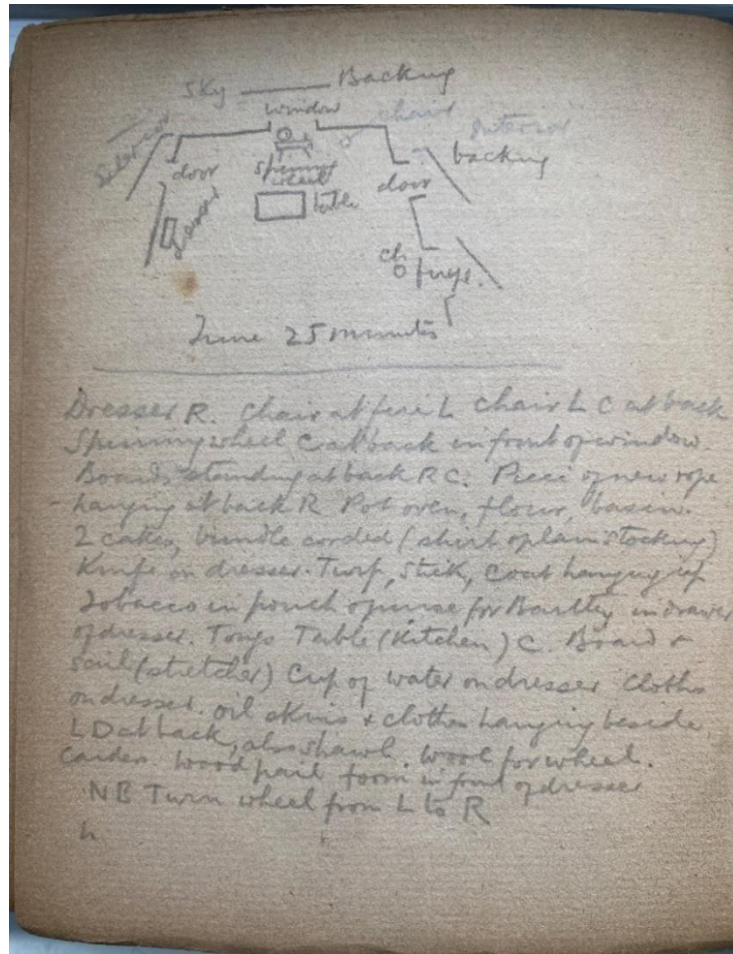 Sky Backing
window
chair
Interior
backing
door
spinning
wheel
door
table
Dresser
ch
fire
25 minutes
Dresser R. Chair at fire L chair L C at back
Spinning wheel C at back in front of window.
Boards standing at back R C. Piece of new rope
hanging at back R Pot oven, flour, basin.
2 cakes, bundle corded (shirt & plain stocking)
Knife on dresser. Turf, stick, coat hanging up
Tobacco in pouch & purse for Bartley in drawer
of dresser. Tongs Table (kitchen) C. Board &
sail (stretcher) Cup of water on dresser Cloths
on dresser. oil skins & clothes hanging beside
L D at back, also shawl. Wool for wheel.
Carder. Wood pail form in front of dresser
NB Turn wheel from L to R